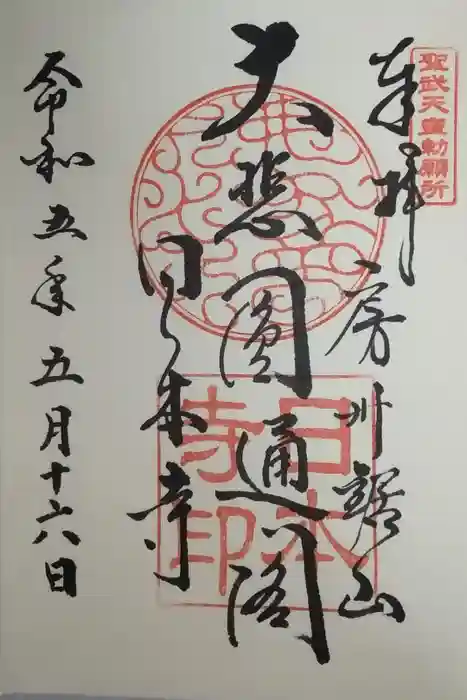 聖武天皇勅願所
奉拝
房州鋸山
大悲圓通閣
日本寺
令和五年五月十六日
日本寺印